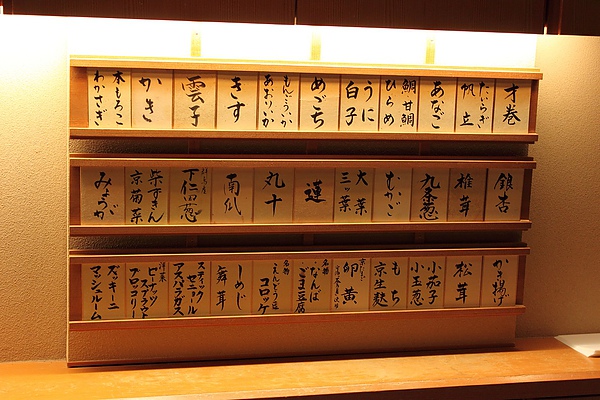 才巻
たいらぎ
帆立
あなご
鯛・甘鯛
ひらめ
うに
白子
めごち
もんごういか
あおりいか
きす
雲子
かき
本もろこ
わかさぎ
銀杏
椎茸
九条葱
むかご
大葉
三ッ葉
蓮
丸十
南瓜
下仁田葱
紫ずきん
京菊菜
みょうが
かき揚げ
松茸
小茄子
小玉葱
もち
京生麩
卵黄
名物
なんば
ごま豆腐
名物
えんどう豆
コロッケ
しめじ
舞茸
スティック
セニョール
アスパラガス
洋菜
ピーナッツ
スプラウト
ブロッコリー
ズッキーニ
マッシュルーム